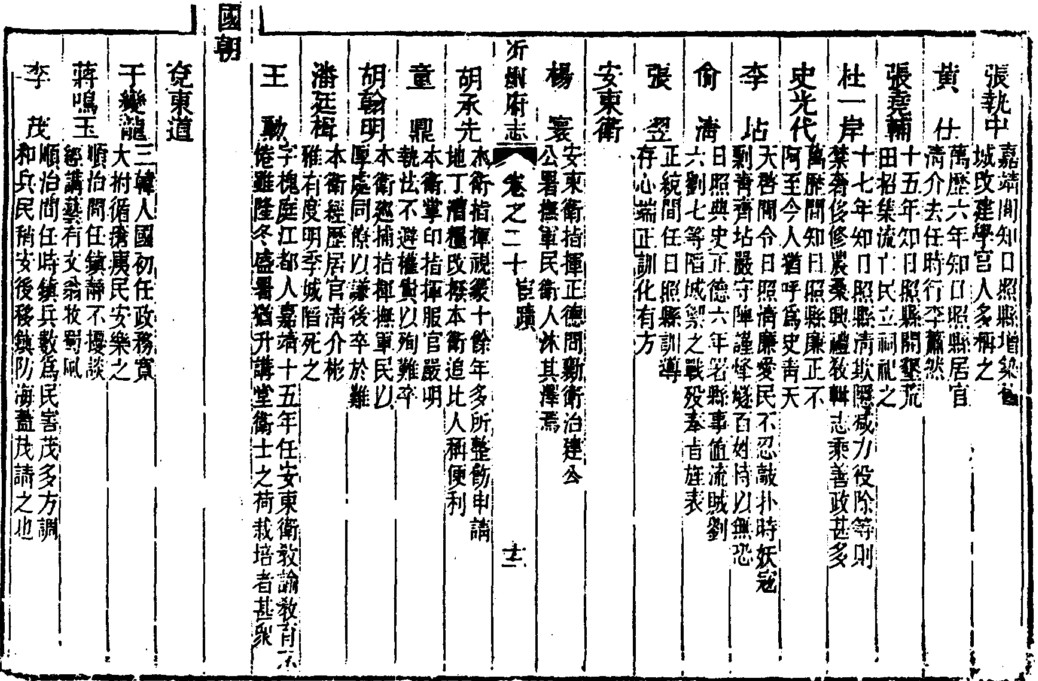 張執中
嘉靖間知日照縣增築舊
城改建學宮人多稱之
黃仕
萬歷六年知日照縣居官
清介去任時行李蕭然
張堯輔
十五年知日照縣開墾荒
田招集流亡民立祠祀之
杜一岸
十七年知日照縣清欺隱減力役除等則
禁奢侈修農桑興禮教輯志乘善政甚多
史光代
萬歷間知日照縣廉正不
阿至今人猶呼為史青天
李坫
天啓間令日照清廉愛民不忍敲扑時妖寇
剽靑齊坫嚴守陴謹烽燧百姓恃以無恐
俞清
日照典史正德六年署縣事值流賊劉
六劉七等陷城禦之戰歿奉旨旌表
張翌
正統間任日照縣訓導
存心端正訓化有方
安東衛
楊寰
安東衛指揮正德間勷衛治建公
公署撫軍民衛人沐其澤焉
沂州府志
卷之二十
宦蹟
十二
胡承先
本衛指揮視篆十餘年多所整飭申請
地丁漕糧改撥本衛追比人稱便利
童鼎
本衛掌印指揮服官嚴明
執法不避權貴以殉難卒
胡翰明
本衛巡捕指揮撫軍民以
厚處同僚以謙後卒於難
潘廷楫
本衛經歷居官清介彬
雅有度明季城陷死之
王勳
字槐庭江都人嘉靖十五年任安東衛教諭教育不
倦雖隆冬盛暑猶升講堂衛士之荷栽培者甚衆
國朝
兗東道
于變龍
三韓人國初任政務寬
大拊循瘡痍民安樂之
蔣鳴玉
順治間任鎮靜不擾談
經講藝有文翁牧蜀風
李茂
順治間任時鎮兵數為民害茂多方調
和兵民稍安後移鎮防海蓋茂請之也